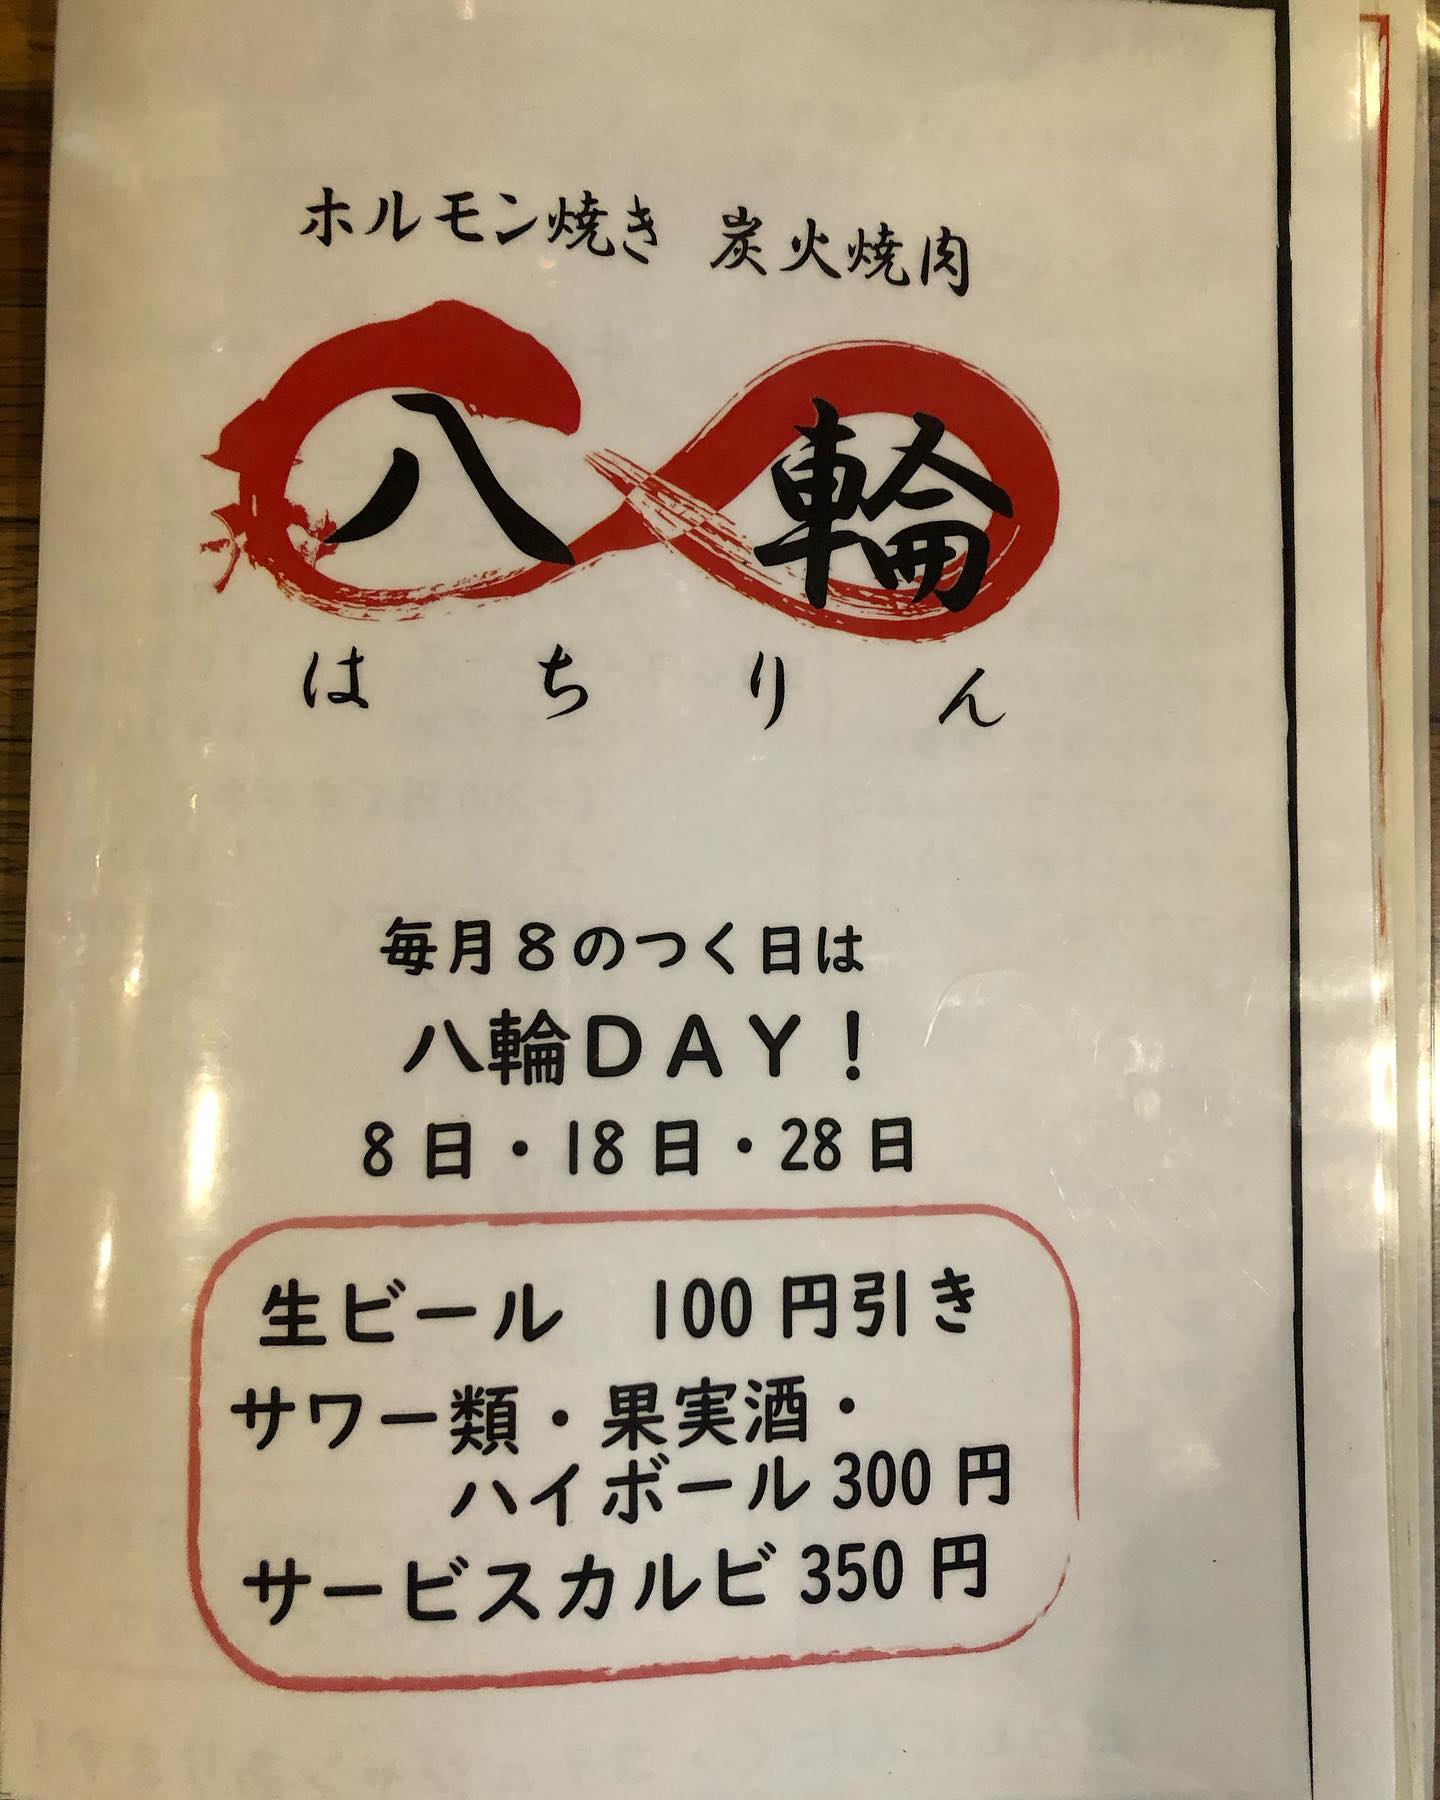 ホルモン焼き 炭火焼肉
八輪
はちりん
毎月8のつく日は
八輪DAY！
8日・18日・28日
生ビール 100円引き
サワー類・果実酒・
ハイボール300円
サービスカルビ350円